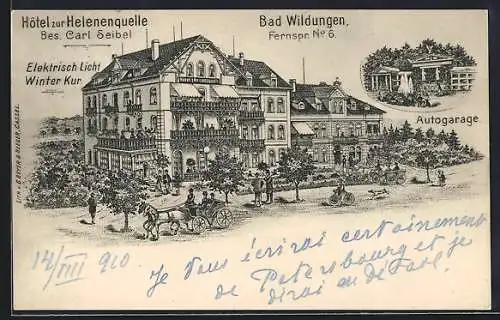 Hôtel zur Helenenquelle
Bes. Carl Seibel
Elektrisch Licht
Winter Kur
Bad Wildungen,
Fernspr. No 6.
Autogarage
LITH. v. GEYER & REGER, CASSEL
14/VIII 910
Je vous écrirai certainement
de Petersbourg et je
dirai au